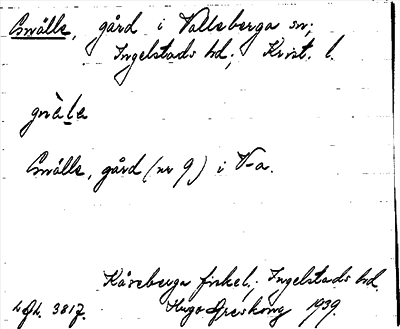 Gnälle, gård i Valleberga sn;
Ingelstads hd; Krist. l.
gnὰla
Gnälle, gård (nr 9) i V-a.
Kåseberga fiskel.; Ingelstads hd.
Hugo Areskoug 1939.